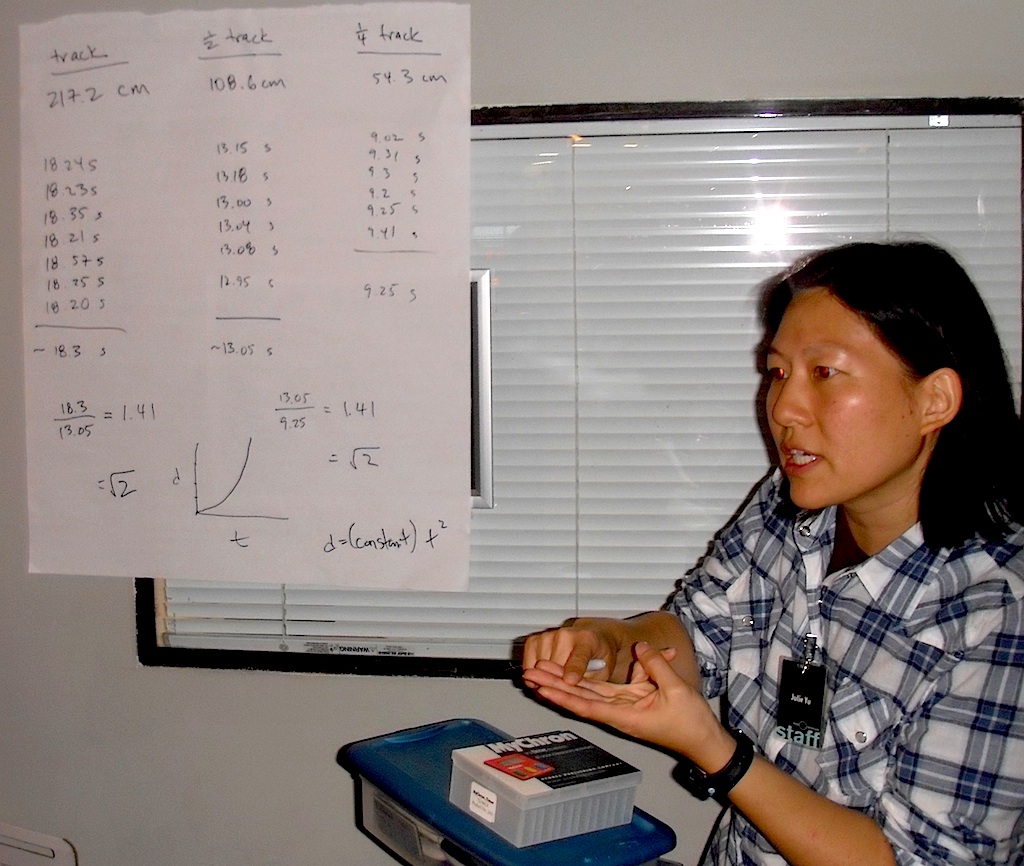 track
217.2 cm
18.24 s
18.23 s
18.35 s
18.21 s
18.57 s
18.25 s
18.20 s
~ 18.3 s
18.3 / 13.05 = 1.41
= √2
½ track
108.6 cm
13.15 s
13.18 s
13.00 s
13.04 s
13.08 s
12.95 s
~13.05 s
¼ track
54.3 cm
9.02 s
9.31 s
9.3 s
9.2 s
9.25 s
9.41 s
9.25 s
13.05 / 9.25 = 1.41
= √2
d
t
d = (constant) t²
WARNING
MyChron
Julie Yu
staff